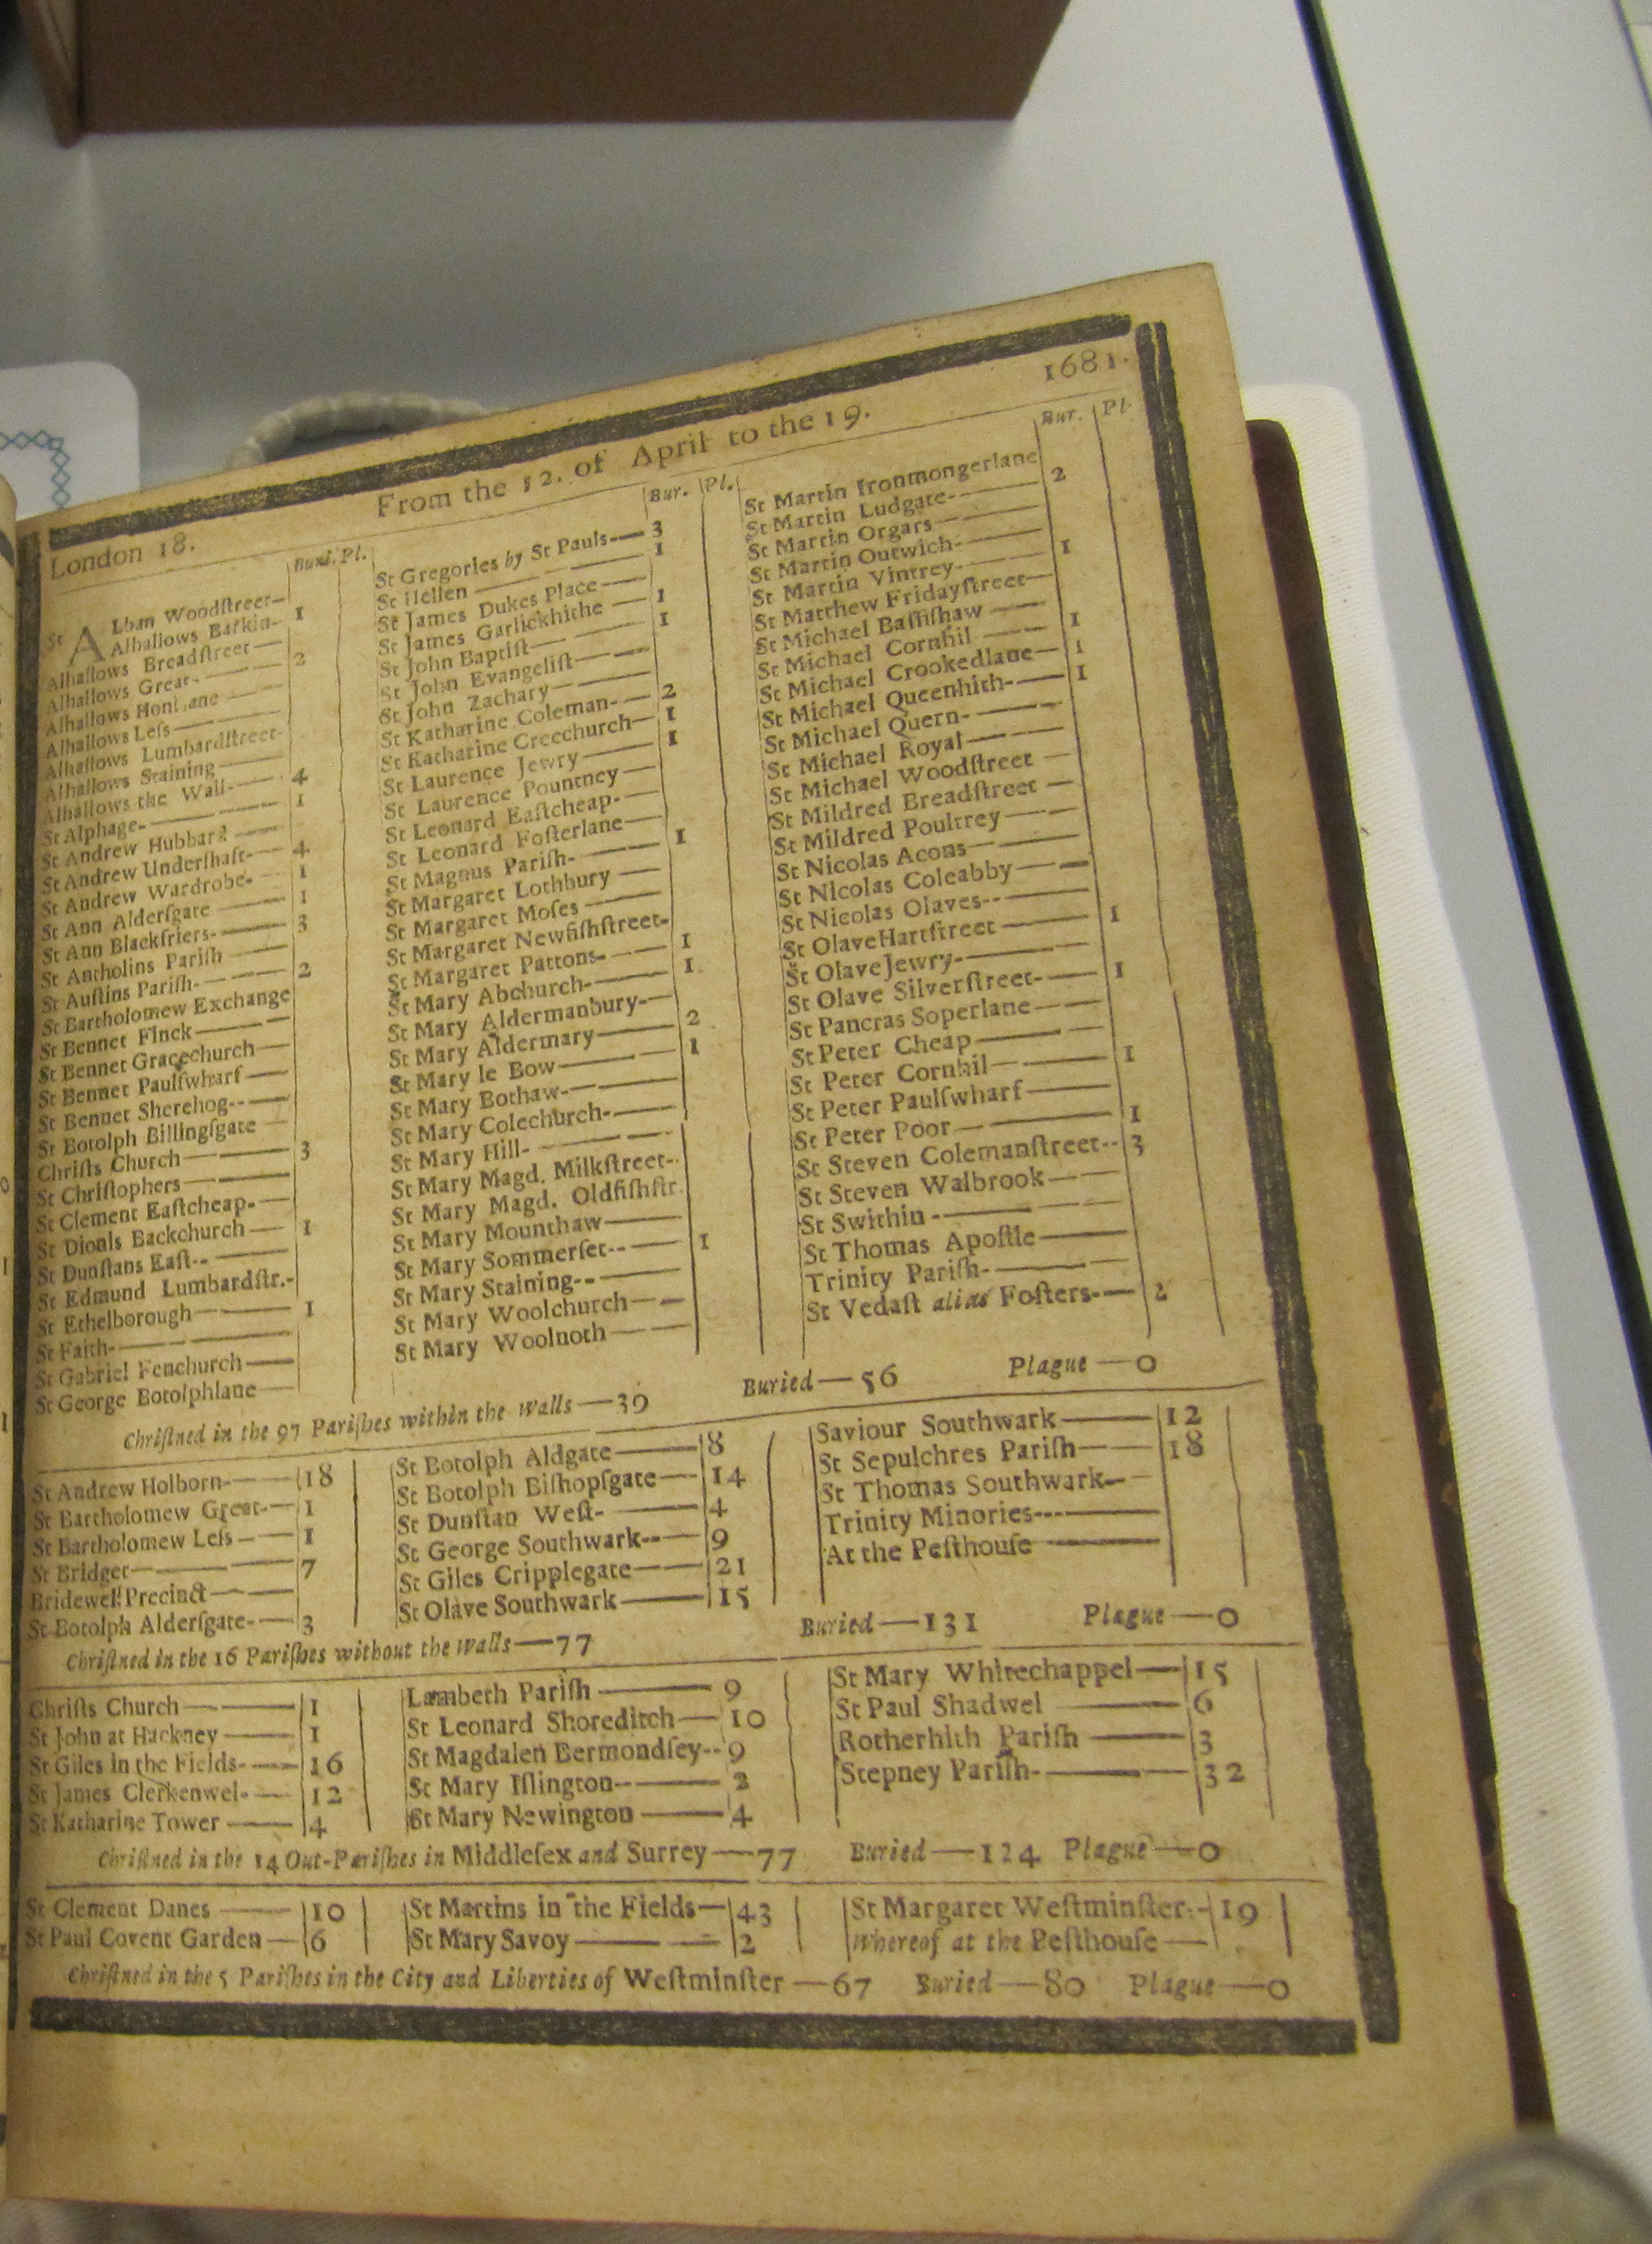 London 18. From the 12. of April to the 19. 1681.
Buri. Pl.
St ALban Woodſtreet-
Alhallows Barkin- 1
Alhallows Breadſtreet
Alhallows Great- 2
Alhallows Honilane
Alhallows Leſs
Alhallows Lumbardſtreet
Alhallows Staining
Alhallows the Wall- 4
St Alphage- 1
St Andrew Hubbard
St Andrew Underſhaft- 4
St Andrew Wardrobe- 1
St Ann Alderſgate 1
St Ann Blackfriers- 3
St Antholins Pariſh
St Auſtins Pariſh- 2
St Bartholomew Exchange
St Bennet Finck
St Bennet Gracechurch
St Bennet Paulſwharf
St Bennet Sherehog--
St Botolph Billingſgate
Chriſts Church 3
St Chriſtophers
St Clement Eaſtcheap-
St Dionis Backchurch 1
St Dunſtans Eaſt--
St Edmund Lumbardſtr.-
St Ethelborough 1
St Faith-
St Gabriel Fenchurch
St George Botolphlane
Bur. Pl.
St Gregories by St Pauls 3
St Hellen 1
St James Dukes Place
St James Garlickhithe 1
St John Baptiſt 1
St John Evangeliſt
St John Zachary
St Katharine Coleman- 2
St Katharine Creechurch 1
St Laurence Jewry 1
St Laurence Pountney
St Leonard Eaſtcheap-
St Leonard Foſterlane
St Magnus Pariſh- 1
St Margaret Lothbury
St Margaret Moſes
St Margaret Newfiſhſtreet-
St Margaret Pattons- 1
St Mary Abchurch- 1
St Mary Aldermanbury-
St Mary Aldermary 2
St Mary le Bow 1
St Mary Bothaw-
St Mary Colechurch-
St Mary Hill-
St Mary Magd. Milkſtreet-
St Mary Magd. Oldfiſhſtr.
St Mary Mounthaw
St Mary Sommerſet-- 1
St Mary Staining--
St Mary Woolchurch
St Mary Woolnoth
Bur. Pl.
St Martin Ironmongerlane
St Martin Ludgate- 2
St Martin Orgars
St Martin Outwich-
St Martin Vintrey- 1
St Matthew Fridayſtreet
St Michael Baſſiſhaw
St Michael Cornhil 1
St Michael Crookedlane 1
St Michael Queenhith- 1
St Michael Quern-
St Michael Royal
St Michael Woodſtreet
St Mildred Breadſtreet
St Mildred Poultrey
St Nicolas Acons
St Nicolas Coleabby
St Nicolas Olaves--
St Olave Hartſtreet 1
St Olave Jewry-
St Olave Silverſtreet- 1
St Pancras Soperlane
St Peter Cheap
St Peter Cornhil 1
St Peter Paulſwharf
St Peter Poor 1
St Steven Colemanſtreet-- 3
St Steven Walbrook
St Swithin -
St Thomas Apoſtle
Trinity Pariſh-
St Vedaſt alias Foſters- 2
Chriſtned in the 97 Pariſhes within the walls — 39 Buried — 56 Plague — 0
St Andrew Holborn- 18
St Bartholomew Great- 1
St Bartholomew Leſs 1
St Bridget 7
Bridewel Precinct
St Botolph Alderſgate- 3
St Botolph Aldgate 8
St Botolph Biſhopſgate 14
St Dunſtan Weſt- 4
St George Southwark-- 9
St Giles Cripplegate 21
St Olave Southwark 15
Saviour Southwark 12
St Sepulchres Pariſh 18
St Thomas Southwark-
Trinity Minories---
At the Peſthouſe
Chriſtned in the 16 Pariſhes without the walls — 77 Buried — 131 Plague — 0
Chriſts Church 1
St John at Hackney 1
St Giles in the Fields- 16
St James Clerkenwel- 12
St Katharine Tower 4
Lambeth Pariſh 9
St Leonard Shoreditch 10
St Magdalen Bermondſey-- 9
St Mary Iſlington-- 2
St Mary Newington 4
St Mary Whitechappel 15
St Paul Shadwel 6
Rotherhith Pariſh 3
Stepney Pariſh- 32
Chriſtned in the 14 Out-Pariſhes in Middleſex and Surrey — 77 Buried — 124 Plague — 0
St Clement Danes 10
St Paul Covent Garden 6
St Martins in the Fields 43
St Mary Savoy 2
St Margaret Weſtminſter - 19
whereof at the Peſthouſe
Chriſtned in the 5 Pariſhes in the City and Liberties of Weſtminſter — 67 Buried — 80 Plague — 0